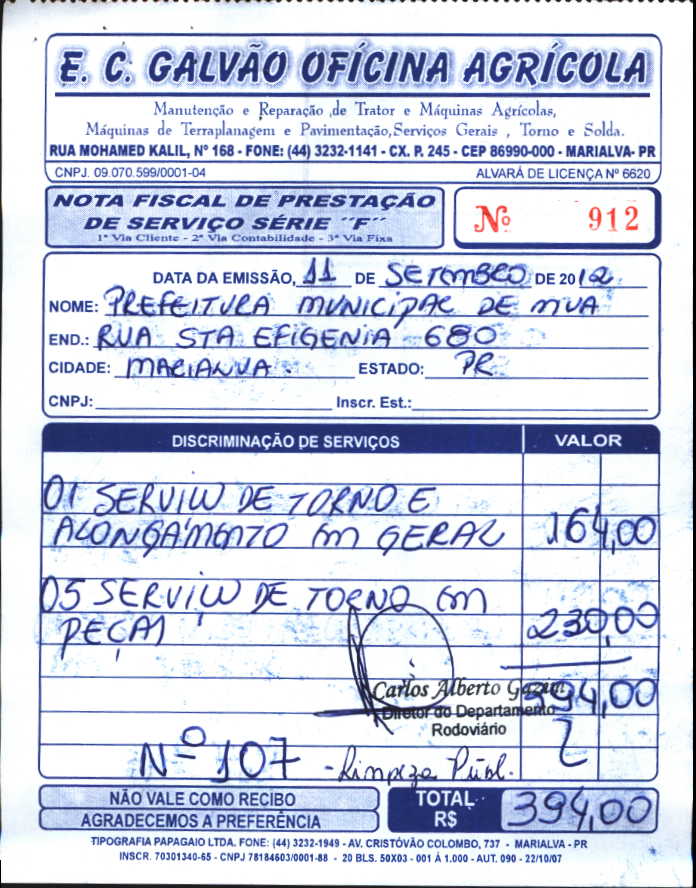 E. C. GALVÃO OFÍCINA AGRÍCOLA
Manutenção e Reparação ,de Trator e Máquinas Agrícolas,
Máquinas de Terraplanagem e Pavimentação,Serviços Gerais , Torno e Solda.
RUA MOHAMED KALIL, Nº 168 - FONE: (44) 3232-1141 - CX. P. 245 - CEP 86990-000 - MARIALVA- PR
CNPJ. 09.070.599/0001-04 ALVARÁ DE LICENÇA Nº 6620
NOTA FISCAL DE PRESTAÇÃO
DE SERVIÇO SÉRIE ´´F´´
1ª Via Cliente - 2ª Via Contabilidade - 3ª Via Fixa
Nº 912
DATA DA EMISSÃO, 11 DE SETEMBRO DE 2012
NOME: PREFEITURA MUNICIPAL DE MVA
END.: RUA STA EFIGENIA 680
CIDADE: MARIALVA. ESTADO: PR
CNPJ: Inscr. Est.:
DISCRIMINAÇÃO DE SERVIÇOS VALOR
01 SERVIÇO DE TORNO E
ALONGAMENTO EM GERAL 164,00
05 SERVIÇO DE TORNO EM
PEÇAS 230,00
Carlos Alberto 394,00
Diretor do Departamento
Rodoviário
Nº 107 - Limpeza Públ.
NÃO VALE COMO RECIBO
AGRADECEMOS A PREFERÊNCIA
TOTAL R$ 394,00
TIPOGRAFIA PAPAGAIO LTDA. FONE: (44) 3232-1949 - AV. CRISTÓVÃO COLOMBO, 737 - MARIALVA - PR
INSCR. 70301340-65 - CNPJ 78184603/0001-88 - 20 BLS. 50X03 - 001 Á 1.000 - AUT. 090 - 22/10/07